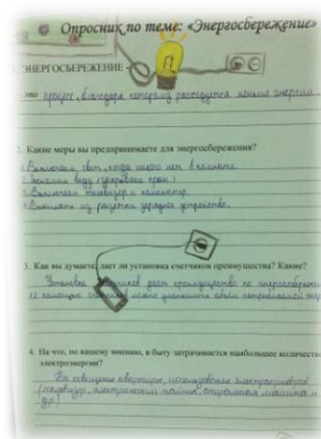 Опросник по теме: «Энергосбережение»
ЭНЕРГОСБЕРЕЖЕНИЕ
это процесс, благодаря которому расходуется меньше энергии.
2. Какие меры вы предпринимаете для энергосбережения?
1. Выключаем свет, когда никого нет в комнате.
2. Экономим воду (закрываем кран)
3. Выключаем телевизор и компьютер.
4. Вынимаем из розетки зарядное устройство.
3. Как вы думаете, дает ли установка счетчиков преимущества? Какие?
Установка счетчиков дает преимущество по
с помощью счетчиков можно уменьшить объем потребляемой
4. На что, по вашему мнению, в быту затрачивается наибольшее количество
электроэнергии?
На освещение квартиры, использование электроприборов
(телевизор, электрический чайник, стиральная машина и
др.)